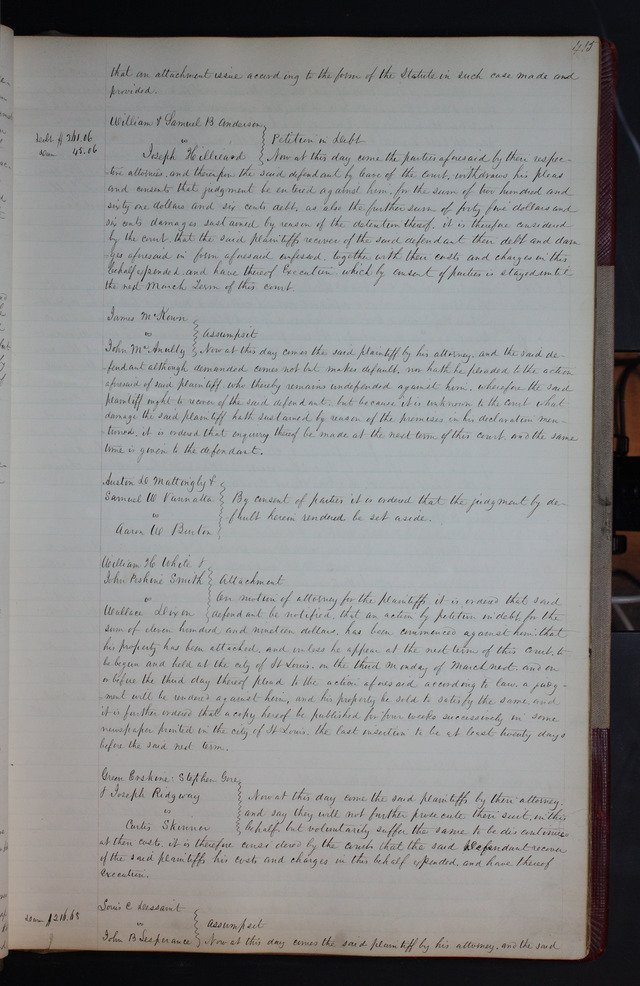 415
that an attachment issue according to the form of the Statute in such case made and
provided.
William & Samuel B Anderson
Debt $261.06
vs
Petition in Debt
Dam 45.06
Joseph Hilliard
Now at this day come the parties aforesaid by their respec-
tive attornies, and thereupon the said defendant by leave of the court, withdraws his pleas
and consents that judgment be entered against him, for the sum of two hundred and
sixty one dollars and six cents debt, as also the further sum of forty five dollars and
six cents damages sustained by reason of the detention thereof, it is therefore considered
by the court, that the said plaintiffs recover of the said defendant their debt and dam
ages aforesaid in form aforesaid confessed, together with their costs and charges in this
behalf expended, and have thereof Execution, which by consent of parties is stayed until
the next March Term of this court
James McKown
vs
Assumpsit
John McAnulty
Now at this day comes the said plaintiff by his attorney, and the said de-
fendant although demanded comes not but makes default, nor hath he pleaded to the action
aforesaid of said plaintiff who thereby remains undefended against him, wherefore the said
plaintiff ought to recover of the said defendant, but because it is unknown to the court what
damage the said plaintiff hath sustained by reason of the premises in his declaration men-
tioned, it is ordered that enquiry thereof be made at the next term of this court, and the same
time is given to the defendant.
Austin D Mattingly &
Samuel W
By consent of parties it is ordered that the judgment by de-
vs
fault herein rendered be set aside.
Aaron W Burton
William H White &
John Erskine Smith
Attachment
vs
On motion of attorney for the plaintiffs, it is ordered that said
Wallace Dixon
defendant be notified, that an action by petition in debt for the
sum of eleven hundred and nineteen dollars, has been commenced against him: that
his property has been attached, and unless he appear at the next term of this court, to
be begun and held at the city of St Louis, on the third Monday of March next, and on
or before the third day thereof plead to the action aforesaid according to law, a judg-
ment will be rendered against him, and his property be sold to satisfy the same, and
it is further ordered that a copy hereof be published for four weeks successively in some
newspaper printed in the city of St Louis, the last insertion to be at least twenty days
before the said next term.
Green Erskine, Stephen Gore,
& Joseph Ridgway
Now at this day come the said plaintiffs by their attorney,
vs
and say they will not further prosecute their suit, in this
Curtis Skinner
behalf, but voluntarily suffer the same to be discontinued
at their costs, it is therefore considered by the court that the said Defendant recover
of the said plaintiffs his costs and charges in this behalf expended, and have thereof
Execution.
Louis C
vs
Assumpsit
Dam $216.68
John B Lesperance
Now at this day comes the said plaintiff by his attorney, and the said